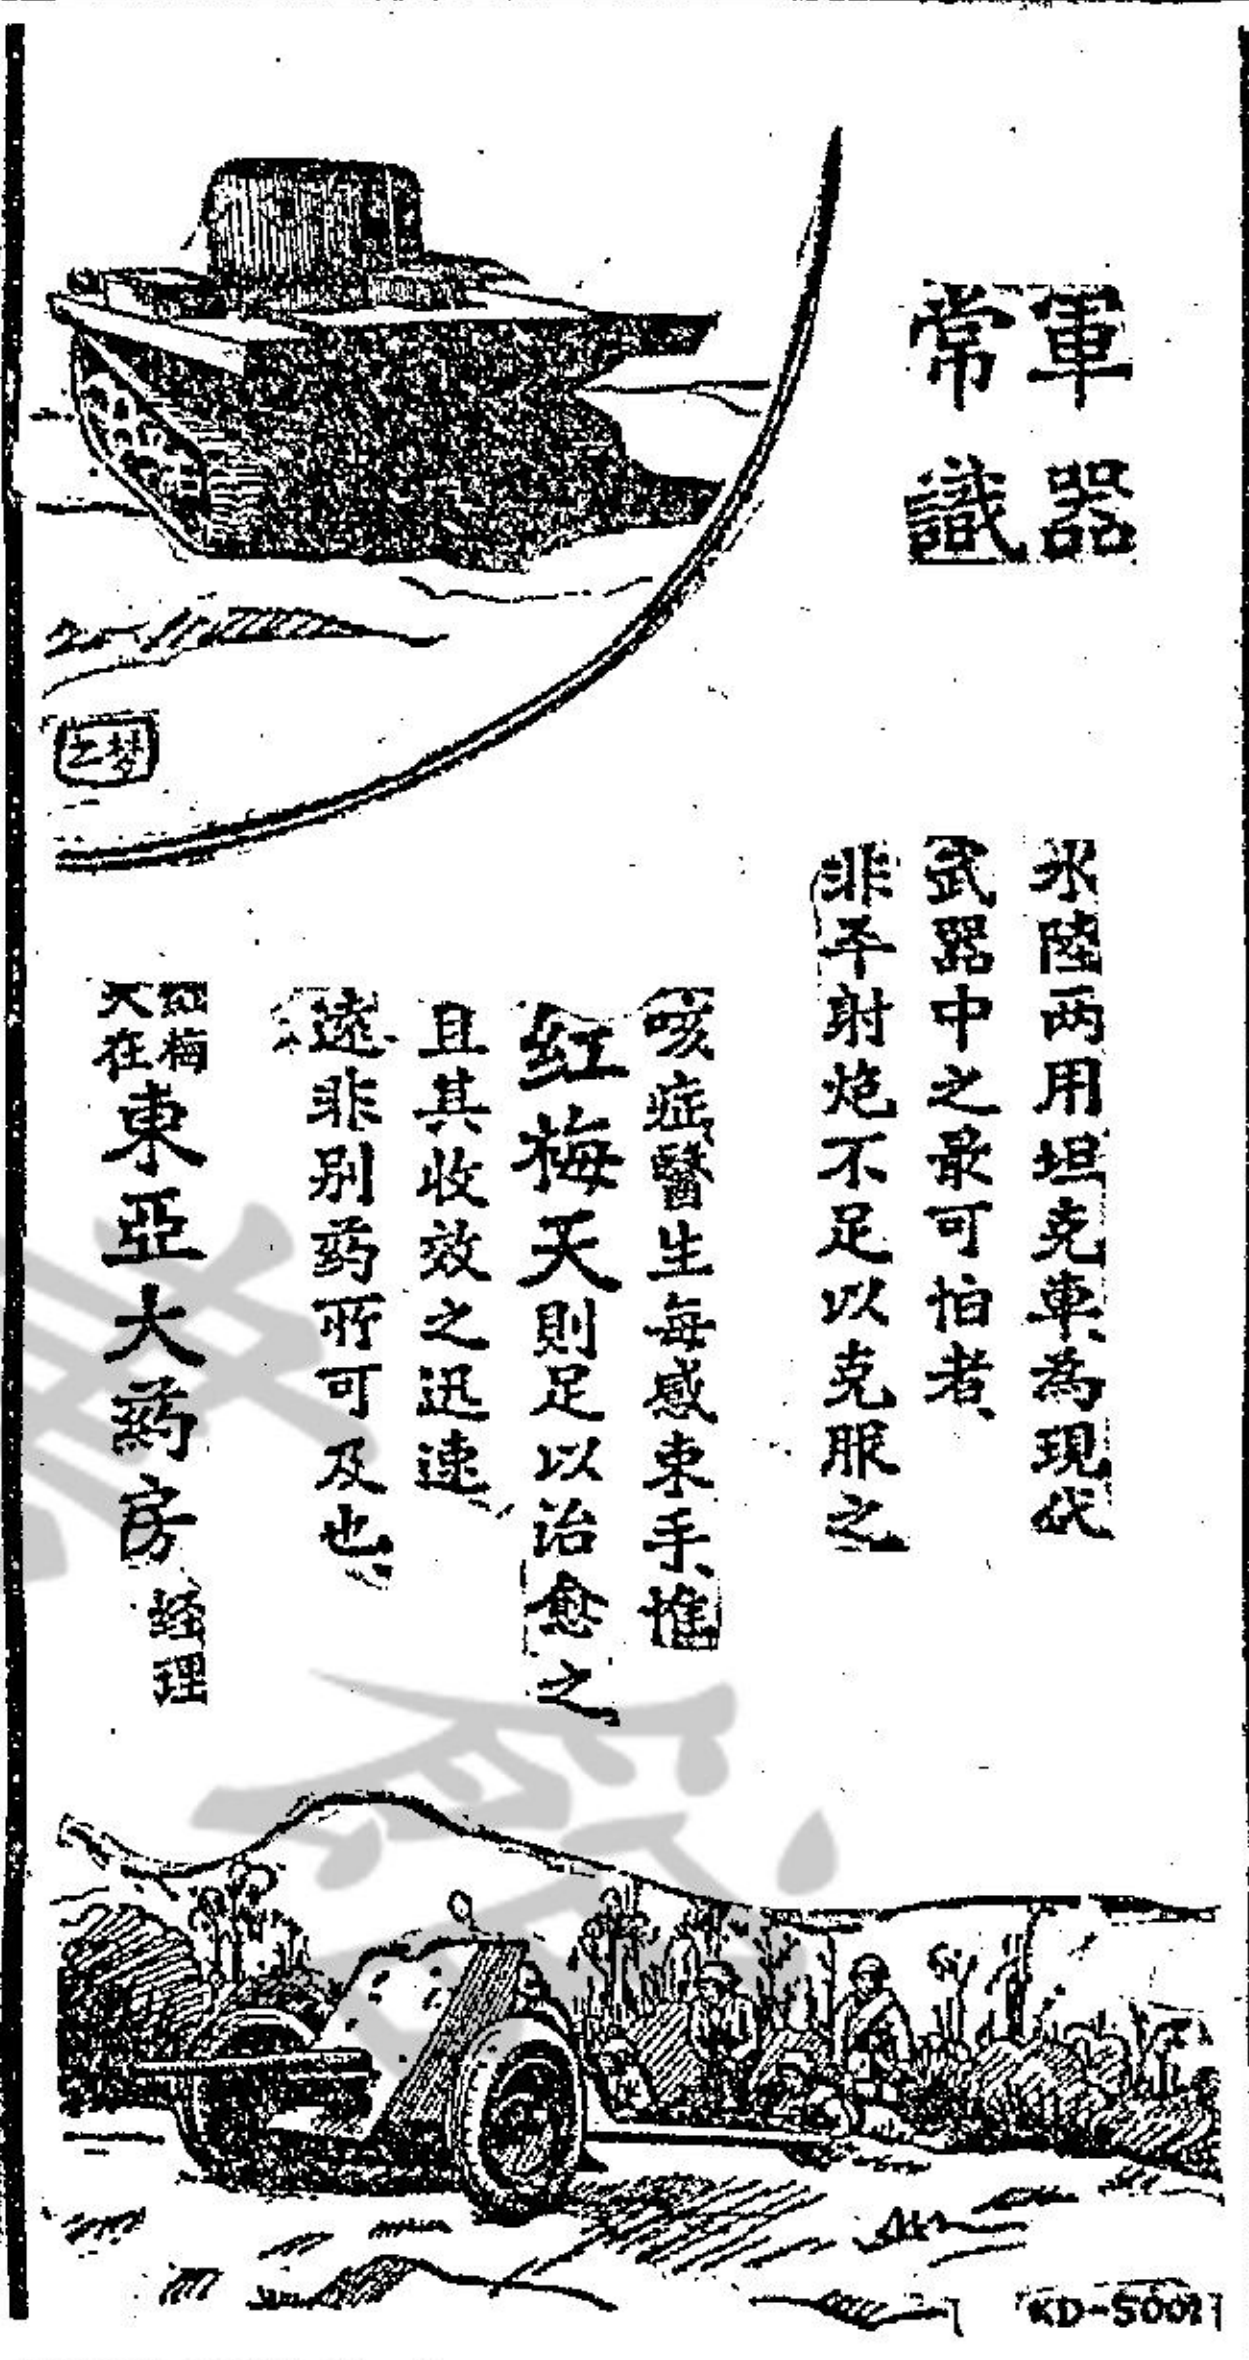 軍器
常識
水陸两用坦克車、為現代
武器中之最可怕者、
非平射炮不足以克服之
咳症醫生每感束手、惟
红梅天則足以治愈之、
且其收效之迅速
遠非别药所可及也、
红梅
天在
東亞大药房
経理
KD-5001